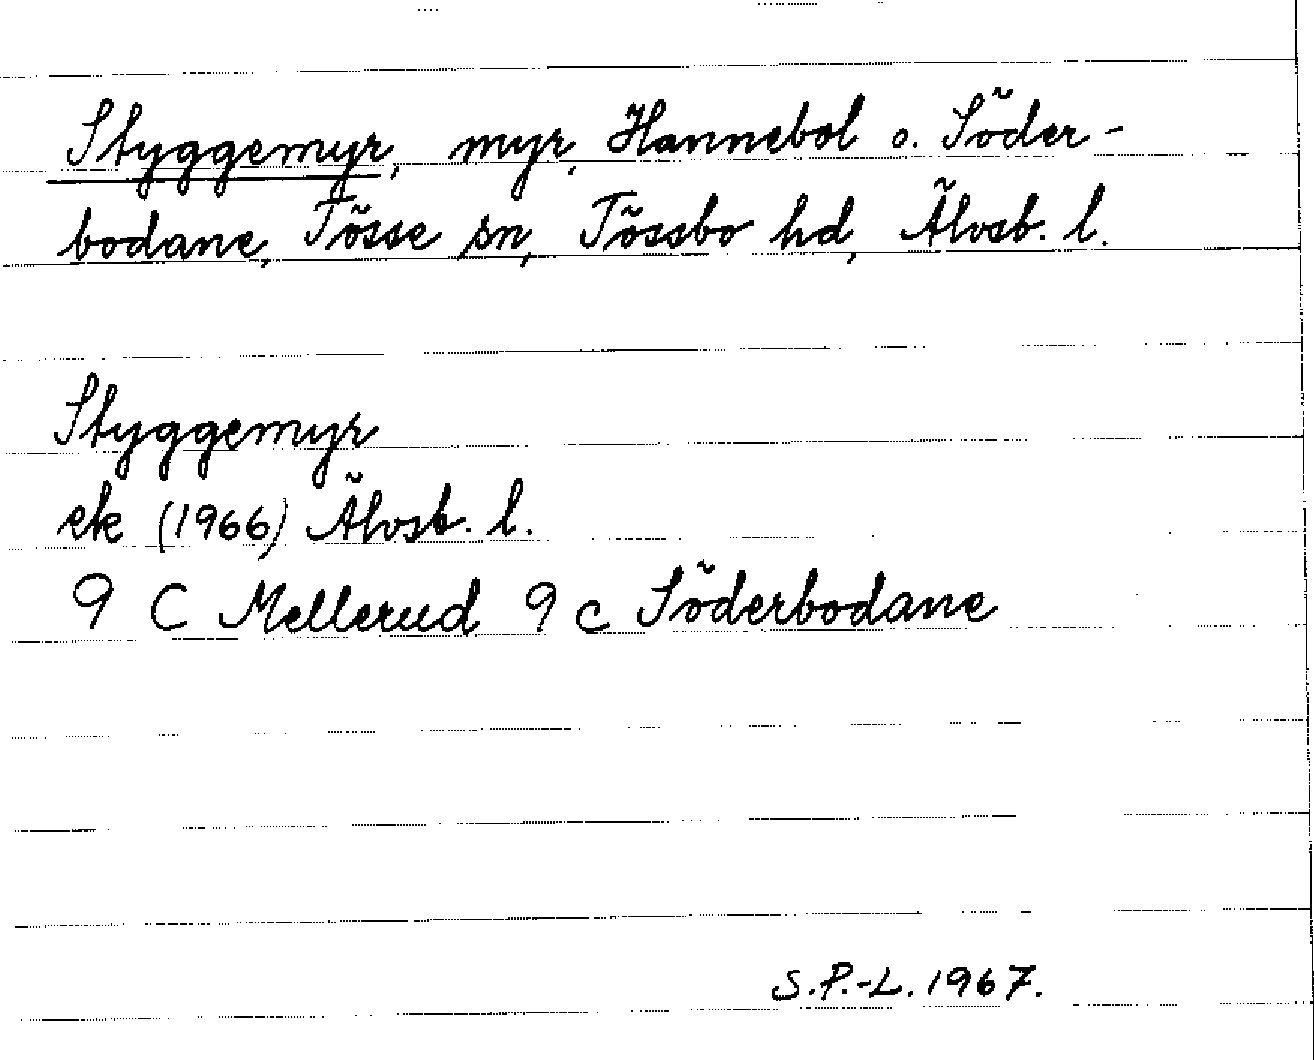 Styggemyr, myr, Hannebol o. Söder-
bodane, Tösse sn, Tössbo hd, Älvsb. l.
Styggemyr
ek (1966) Älvsb. l.
9 C Mellerud 9 c Söderbodane
S.P.-L. 1967.